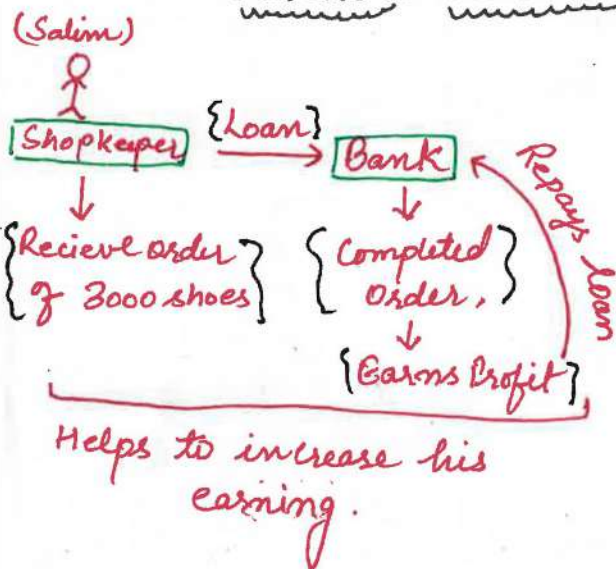 (Salim)
Shopkeeper
{Loan}
Bank
{Recieve order
of 3000 shoes}
{Completed
Order,}
{Earns Profit}
Repays loan
Helps to increase his
earning.